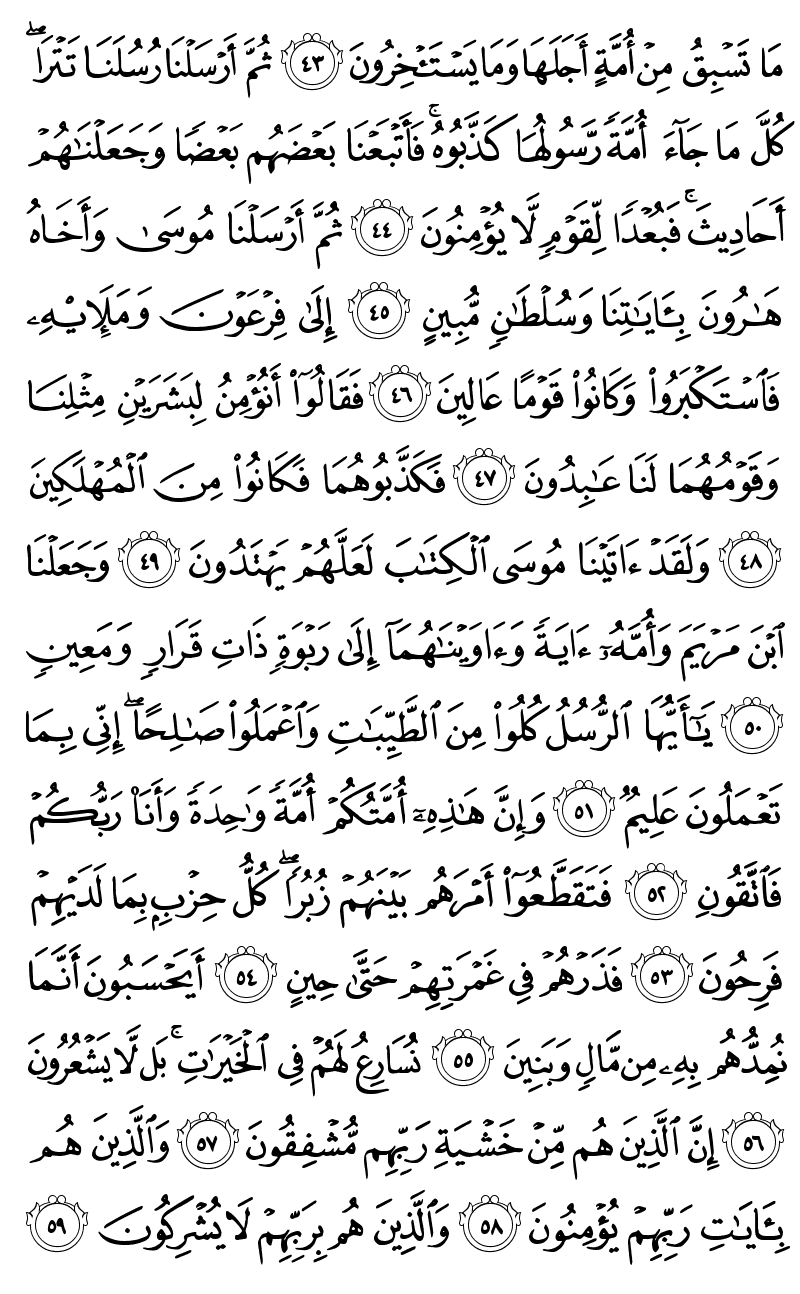 مَا تَسۡبِقُ مِنۡ أُمَّةٍ أَجَلَهَا وَمَا يَسۡتَـٔۡخِرُونَ ٤٣ ثُمَّ أَرۡسَلۡنَا رُسُلَنَا تَتۡرَاۖ
كُلَّ مَا جَآءَ أُمَّةٗ رَّسُولُهَا كَذَّبُوهُۚ فَأَتۡبَعۡنَا بَعۡضَهُم بَعۡضٗا وَجَعَلۡنَٰهُمۡ
أَحَادِيثَۚ فَبُعۡدٗا لِّقَوۡمٖ لَّا يُؤۡمِنُونَ ٤٤ ثُمَّ أَرۡسَلۡنَا مُوسَىٰ وَأَخَاهُ
هَٰرُونَ بِـَٔايَٰتِنَا وَسُلۡطَٰنٖ مُّبِينٍ ٤٥ إِلَىٰ فِرۡعَوۡنَ وَمَلَإِيْهِۦ
فَٱسۡتَكۡبَرُواْ وَكَانُواْ قَوۡمًا عَالِينَ ٤٦ فَقَالُوٓاْ أَنُؤۡمِنُ لِبَشَرَيۡنِ مِثۡلِنَا
وَقَوۡمُهُمَا لَنَا عَٰبِدُونَ ٤٧ فَكَذَّبُوهُمَا فَكَانُواْ مِنَ ٱلۡمُهۡلَكِينَ
٤٨ وَلَقَدۡ ءَاتَيۡنَا مُوسَى ٱلۡكِتَٰبَ لَعَلَّهُمۡ يَهۡتَدُونَ ٤٩ وَجَعَلۡنَا
ٱبۡنَ مَرۡيَمَ وَأُمَّهُۥٓ ءَايَةٗ وَءَاوَيۡنَٰهُمَآ إِلَىٰ رَبۡوَةٖ ذَاتِ قَرَارٖ وَمَعِينٖ
٥٠ يَٰٓأَيُّهَا ٱلرُّسُلُ كُلُواْ مِنَ ٱلطَّيِّبَٰتِ وَٱعۡمَلُواْ صَٰلِحًاۖ إِنِّي بِمَا
تَعۡمَلُونَ عَلِيمٞ ٥١ وَإِنَّ هَٰذِهِۦٓ أُمَّتُكُمۡ أُمَّةٗ وَٰحِدَةٗ وَأَنَا۠ رَبُّكُمۡ
فَٱتَّقُونِ ٥٢ فَتَقَطَّعُوٓاْ أَمۡرَهُم بَيۡنَهُمۡ زُبُرٗاۖ كُلُّ حِزۡبِۭ بِمَا لَدَيۡهِمۡ
فَرِحُونَ ٥٣ فَذَرۡهُمۡ فِي غَمۡرَتِهِمۡ حَتَّىٰ حِينٍ ٥٤ أَيَحۡسَبُونَ أَنَّمَا
نُمِدُّهُم بِهِۦ مِن مَّالٖ وَبَنِينَ ٥٥ نُسَارِعُ لَهُمۡ فِي ٱلۡخَيۡرَٰتِۚ بَل لَّا يَشۡعُرُونَ
٥٦ إِنَّ ٱلَّذِينَ هُم مِّنۡ خَشۡيَةِ رَبِّهِم مُّشۡفِقُونَ ٥٧ وَٱلَّذِينَ هُم
بِـَٔايَٰتِ رَبِّهِمۡ يُؤۡمِنُونَ ٥٨ وَٱلَّذِينَ هُم بِرَبِّهِمۡ لَا يُشۡرِكُونَ ٥٩